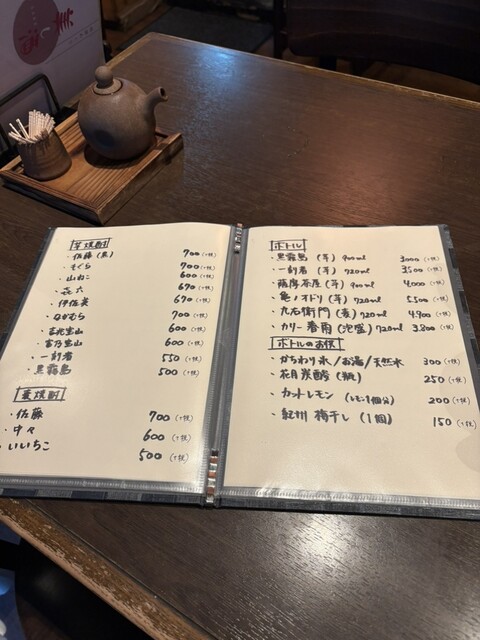 芋焼酎
・佐藤(黒) 700(+税)
・そぐら 700(+税)
・山ねこ 600(+税)
・㐂六 670(+税)
・伊佐美 670(+税)
・ながむら 700(+税)
・吉兆宝山 600(+税)
・富乃宝山 600(+税)
・一刻者 550(+税)
・黒霧島 500(+税)
麦焼酎
・佐藤 700(+税)
・中々 600(+税)
・いいちこ 500(+税)
ボトル
・黒霧島(芋)900ml 3000(+税)
・一刻者(芋)720ml 3500(+税)
・薩摩茶屋(芋)900ml 4,000(+税)
・亀ノオドリ(芋)720ml 5,500(+税)
・九右衛門(麦)720ml 4,900(+税)
・カリー春雨(泡盛)720ml 3,800(+税)
ボトルのお供
・かちわり氷/お湯/天然水 300(+税)
・花月炭酸(瓶) 250(+税)
・カットレモン(レモン1個分) 200(+税)
・紀州梅干し(1個) 150(+税)